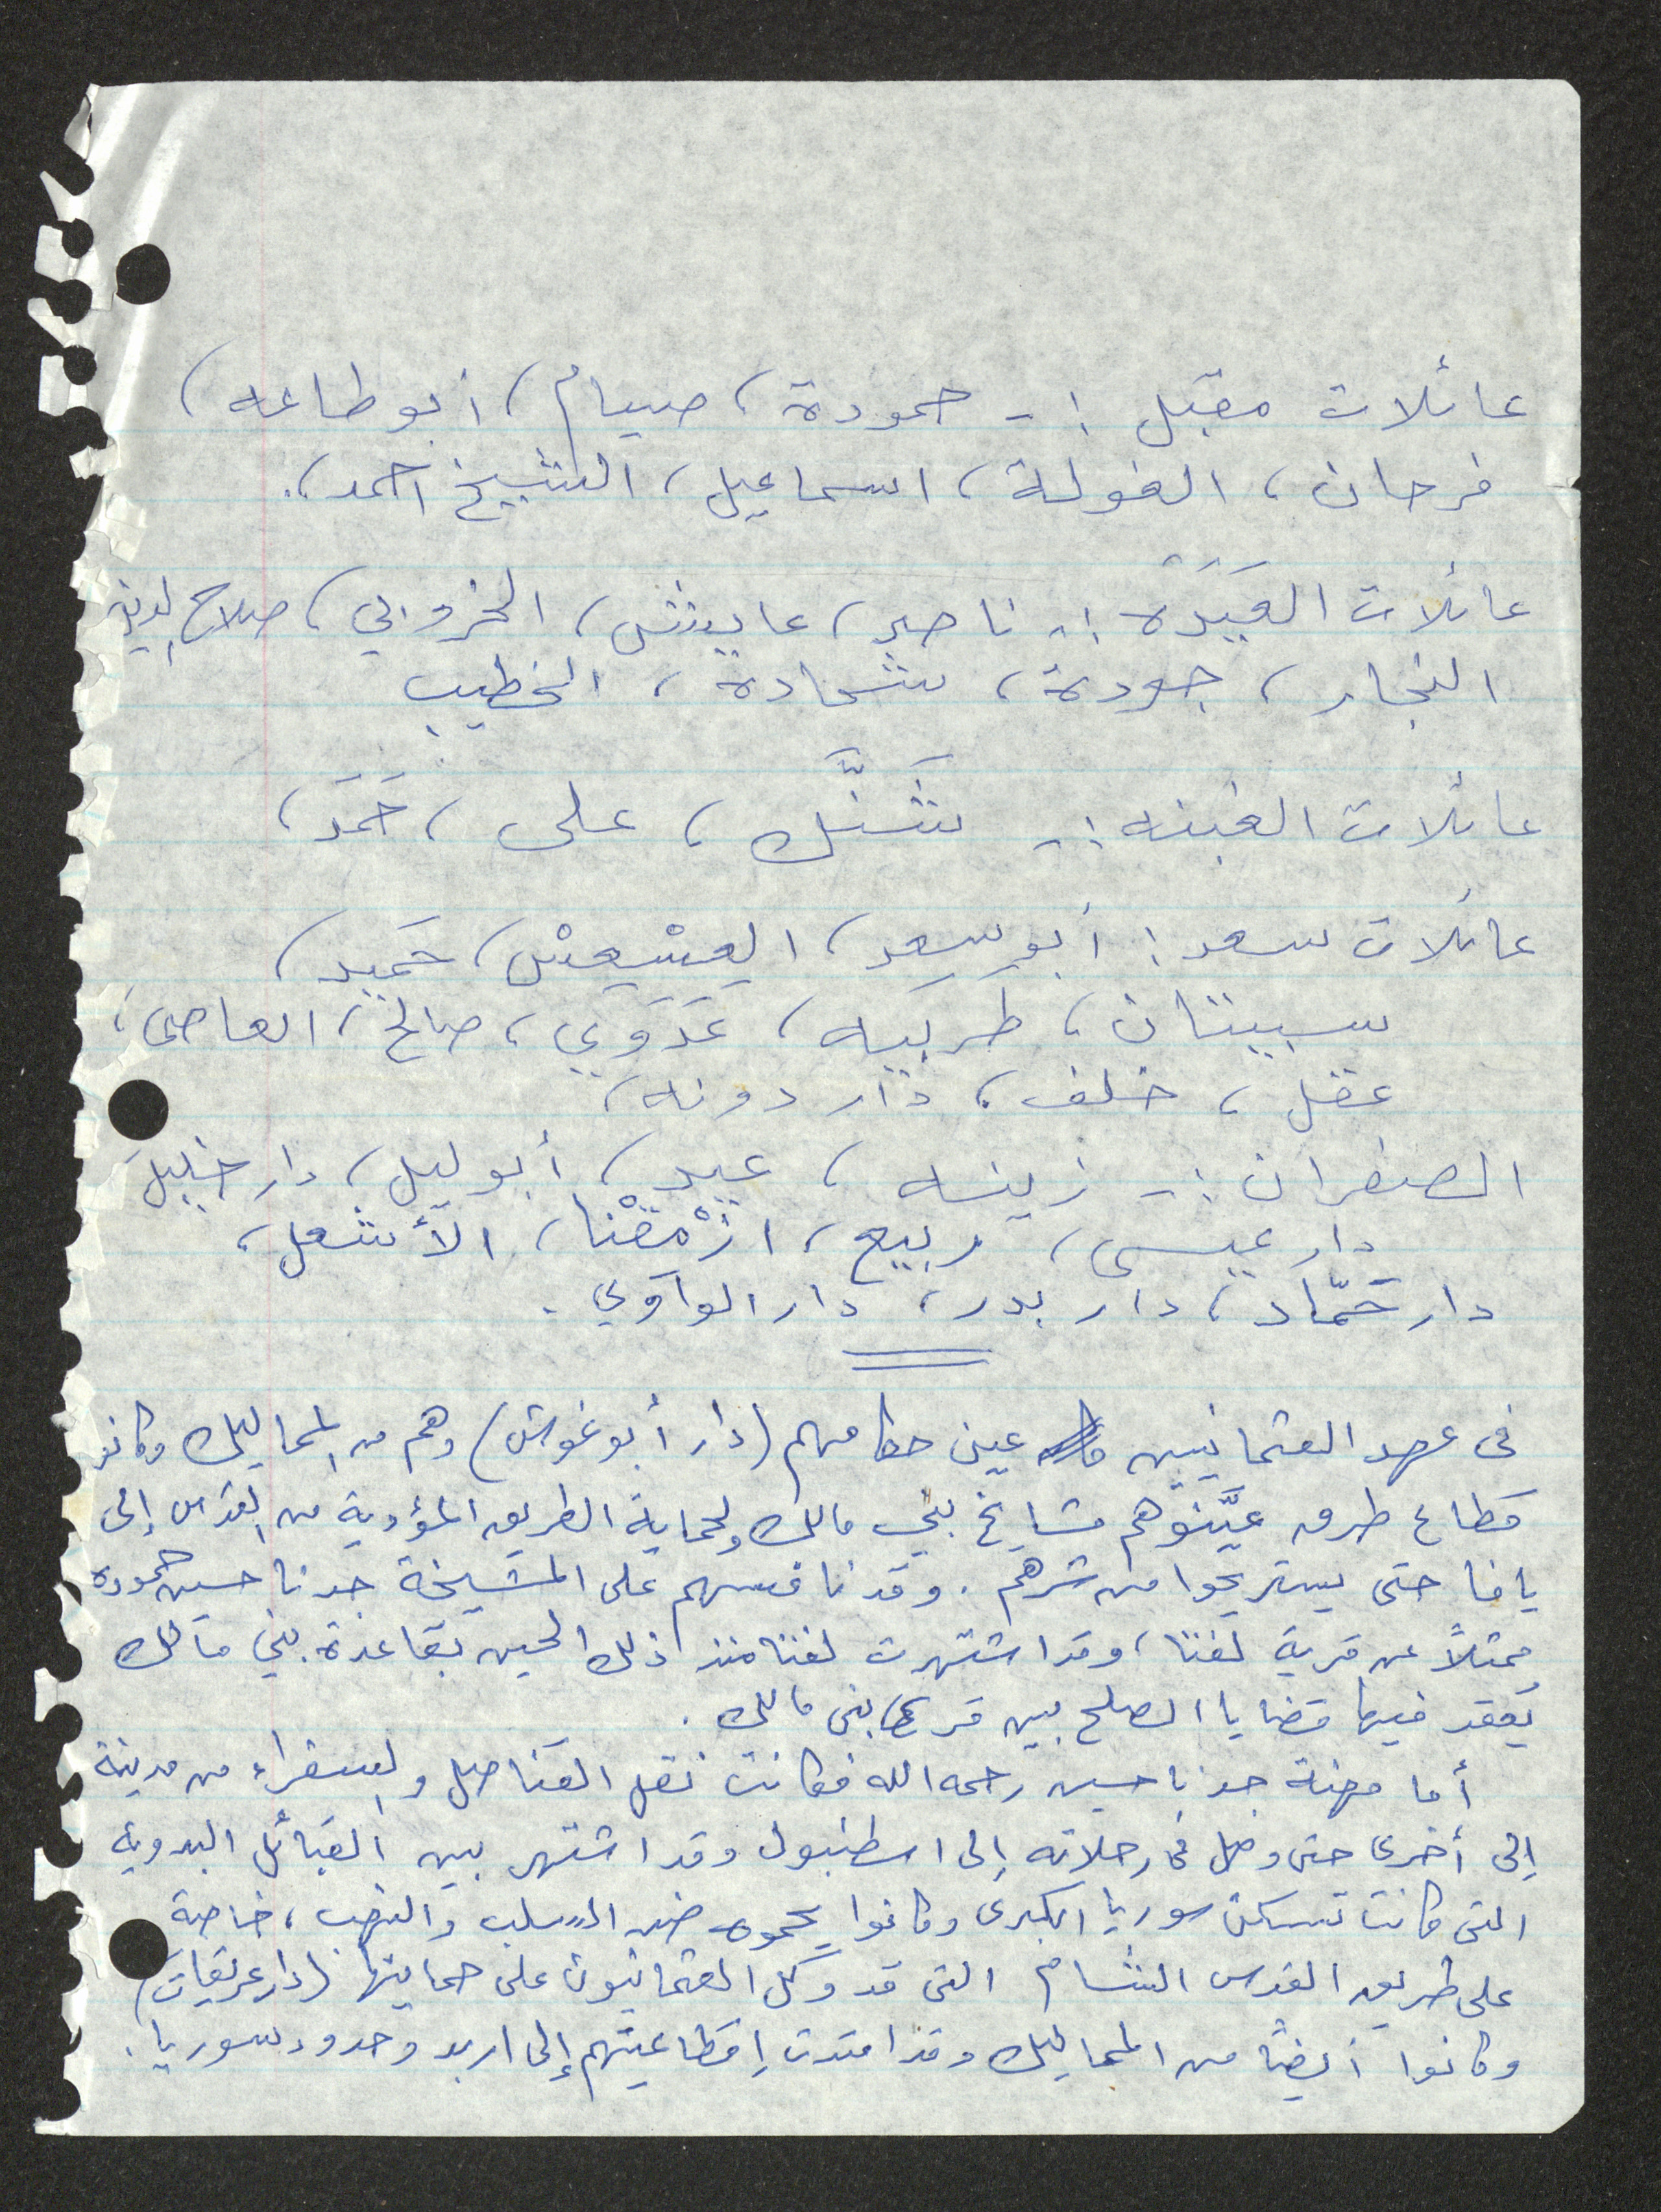 عائلات مقبل :- حمودة، صيام، ابو طاعه،
فرحان، الغولة، اسماعيل، الشيخ احمد،.
عائلات العَبَيدَه :- ناصر، عايش، الخروبي، صلاح الدين
النجار، جودة، شحادة، الخطيب
عائلات الغبنه :- شَنَّك، على، حَمَد،
عائلات سعد : أبو سعد، العِسْعِسْ، حَميد،
سبيتان، طربيه، عَدَوَي، صالح، العاصى،
عقل، خلف، دار دونه،
الصفران :- زينه، عيد، أبو ليل، دار خليل
دار عيسى، ربيع، ازْمِقْنا، الأشعل،
دار حَمّاد، دار بدر، دار الواوي.
فى عهد العثمانيين عين حكامهم (دار أبو غوش) وهم من المماليك وكانو
قطاع طرق عيَّنوهم مشايخ بني مالك ولحماية الطريق المؤدية من القدس إلى
يافا حتى يستريحوا من شرهم. وقد نافسهم على المشيخة جدنا حسين حمودة
ممثلاً عن قرية لفتا، وقد اشتهرت لفتا منذ ذلك الحين بقاعدة بني مالك
يَعقد فيها قضايا الصلح بين قرى بنى مالك.
أما مهنة جدنا حسين رحمه الله فكانت نقل القناصل والسفراء من مدينة
إلى أخرى حتى وصل فى رحلاته إلى اسطنبول وقد اشتهر بين القبائل البدوية
التى كانت تسكن سوريا الكبرى وكانوا يحموه من السلب والنهب، خاصة
على طريق القدس الشام التى قد وكل العثمانيون على حمايتها (دار عريقات)
وكانوا أيضًا من المماليك وقد امتدت إقطاعيتهم إلى اربد وحدود سوريا.